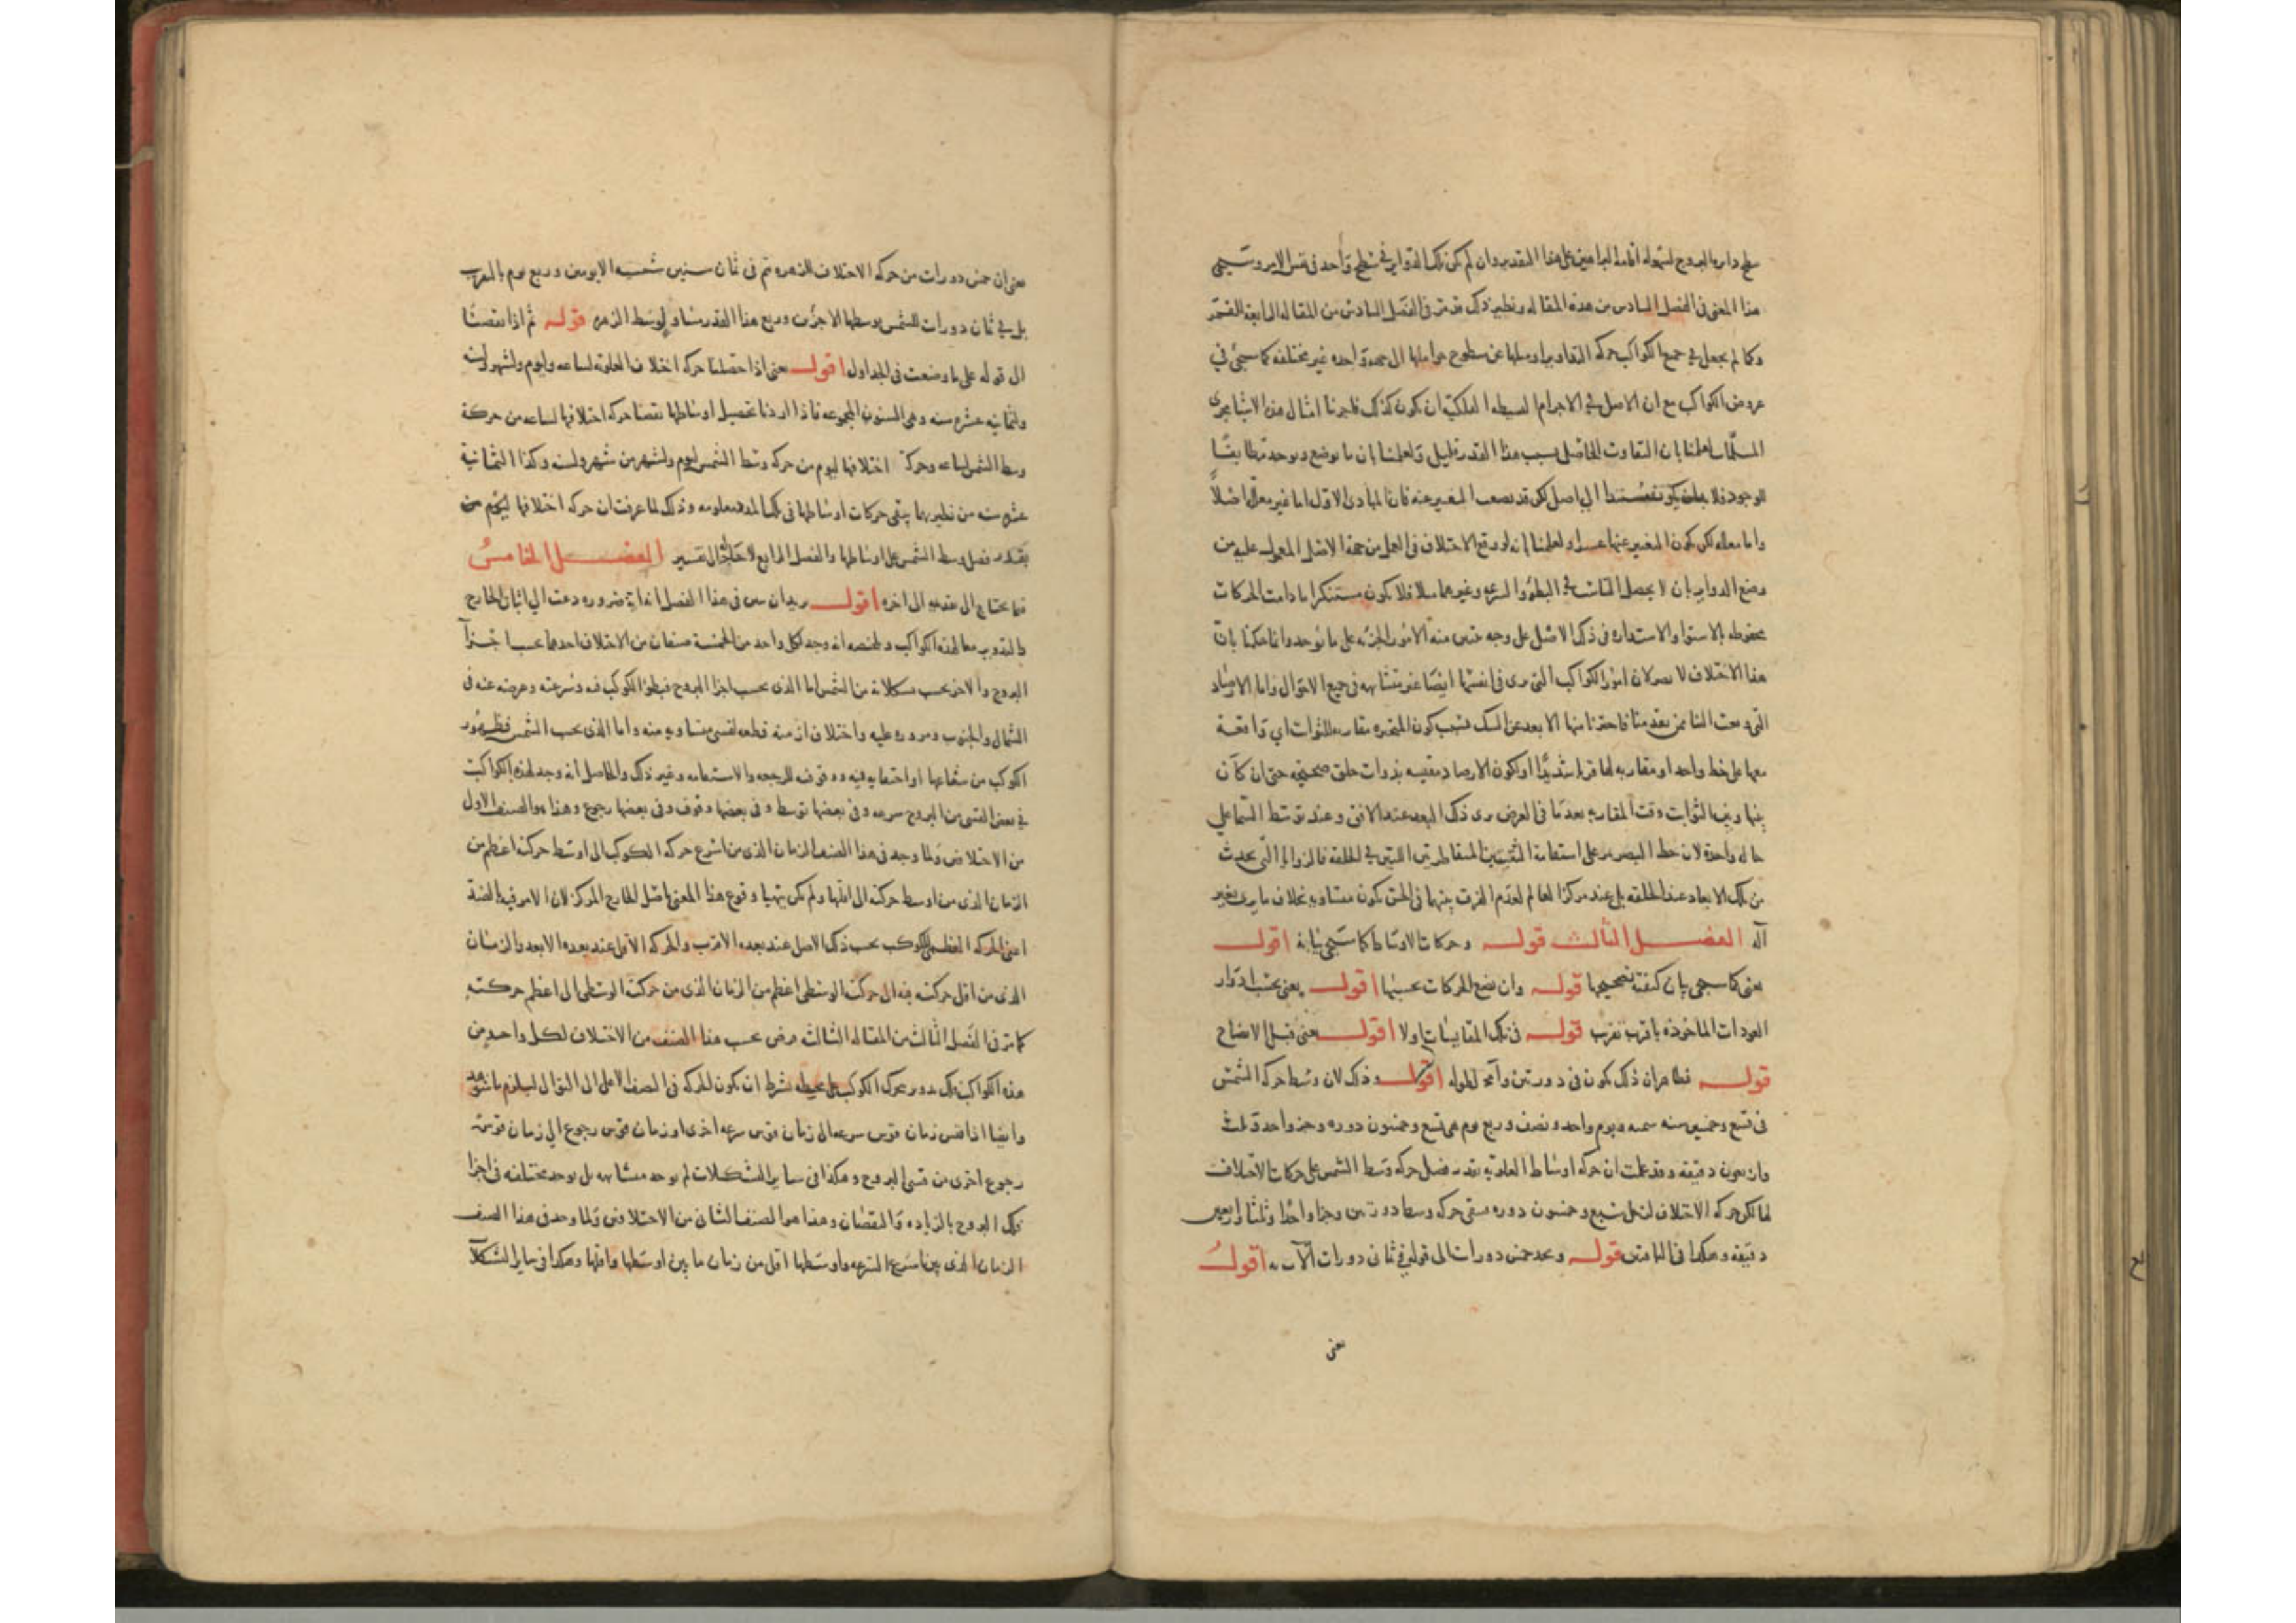 سطح دايرة البروج لسهولة اقامة البراهين على هذا التقدير وان لم يكن تلك التداوير في سطح واحد في نفس الامر وسيجي
هذا المعنى في الفصل السادس من هذه المقالة ونظير ذلك قد مر في الفصل السادس من المقالة الرابعة للقمر
وكما لم يجعل في جميع الكواكب حركة التداوير وميلها عن سطوح حواملها الى جهة واحدة غير مختلفة كما سيجئ في
عروض الكواكب مع ان الاصل في الاجرام البسيطة الفلكية ان يكون كذلك فاجرينا امثال هذه الاشيا مجرى
المسلمات لعلمنا بان التفاوت الحاصل بسبب هذا القدر قليل ولعلمنا بان ما يوضع ويوجد مطابقا
للوجود فلا يمكن ان يكون مستندا الى اصل لكن قد يصعب التعبير عنه فان المبادى الاول اما غير معللة اصلا
واما معللة لكن يكون التعبير عنها عسرا ولعلمنا انه لو وقع الاختلاف في العمل من جهة الاصل المعول عليه من
وضع الدواير بان لا يحصل التشابه في البطؤ والسرعة وغيرهما مثلا فلا يكون مستنكرا ما دامت الحركات
محفوظة بالاستوا والاستدارة في ذلك الاصل على وجه يتبين منه الامور الجزئية على ما يوجد وانما حكمنا بان
هذا الاختلاف لا يضر لان امور الكواكب التي يرى في انفسها ايضا غير متشابهة في جميع الاحوال واما الارصاد
التي وقعت الينا ممن تقدمنا فاخترنا منها الابعد عن الشك بسبب كون المتحيرة مقاربة للثوابت اي واقعة
معها على خط واحد او مقاربة لها قربا شديدا او لكون الارصاد مقيسة بذوات حلق صحيحة حتى ان كان
بينها وبين الثوابت وقت المقاربة بعد ما في العرض يرى ذلك البعد عند الافق وعند توسط السما على
حالة واحدة لان خط البصر يمر على استقامة الثقبتين المتقاطرتين اللتين في الحلقة فالزوايا التي تحدث
من تلك الابعاد عند الحلقة بل عند مركز العالم لعدم الفرق بينهما في الحس يكون متساوية بخلاف ما يرى بغير
آلة الفصل الثالث قوله وحركات الاوساط كما سيجي بيانه اقول
يعني كما سيجي بيان كيفية تصحيحها قوله وان نضع الحركات بحسبها اقول يعني بحسب ادوار
العودات الماخوذة باقرب تقريب قوله في تلك المقايسات اولا اقول يعني قبل الايضاح
قوله فظاهر ان ذلك يكون في دورتين وآحد لطوله اقول وذلك لان وسط حركة الشمس
في تسع وخمسين سنة شمسية ويوم واحد ونصف وربع يوم هي تسع وخمسون دورة وجزء واحد وثلث
واربعون دقيقة وقد علمت ان حركة اوساط العلوية بقدر فضل حركة وسط الشمس على حركات الاختلاف
لها لكن حركة الاختلاف لزحل سبع وخمسون دورة فتبقى حركة وسطه دورتين وجزءا واحدا وثلثا واربعين
دقيقة وهكذا في الباقين قوله وبعد خمس دورات الى قوله في ثماني دورات الا اقول
يعني
يعني ان خمس دورات من حركة الاختلاف للزهرة تتم في ثمان سنين شمسية الا يومين وربع يوم بالتقريب
بل في ثمان دورات للشمس بوسطها الا جزئين وربع هذا القدر مساو لوسط الزهرة قوله ثم اذا نقصنا
الى قوله على ما وضعت في الجداول اقول يعني اذا حصلنا حركة اختلاف العلوية لساعة وليوم ولشهر ولسنة
ولثمانية عشرة سنة وهي السنون المجموعة فاذا اردنا تحصيل اوساطها نقصنا حركة اختلافها لساعة من حركة
وسط الشمس لساعة وحركة اختلافها ليوم من حركة وسط الشمس ليوم ولشهر من شهر ولسنة وكذا الثمانية
عشرة سنة من نظيرتها يبقى حركات اوساطها في تلك المدد معلومة وذلك لما عرفت ان حركة اختلافها ليكون من
بقدر فضل وسط الشمس على اوساطها والفصل الرابع لا حاجة له الى تفسير الفصل الخامس
فيما يحتاج الى تقديمه الى اخره اقول يريد ان يبين في هذا الفصل انه اية ضرورة دعت الى اثبات الخارج
والتدوير معا لهذه الكواكب وملخصه انه وجد لكل واحد من الخمسة صنفان من الاختلاف احدهما بحسب اجزاء
البروج والاخر بحسب تشكلاته من الشمس اما الذي بحسب اجزا البروج فبطؤ الكوكب فيه وسرعته وعرضه عنه في
الشمال والجنوب ومروره عليه واختلاف ازمنة قطعه لقسي متساوية منه واما الذي بحسب الشمس فظهور
الكوكب من شعاعها او اختفايه فيه ووقوفه للرجعة والاستقامة وغير ذلك والحاصل انه وجد لهذه الكواكب
في بعض القسي من البروج سرعة وفي بعضها توسط وفي بعضها وقوف وفي بعضها رجوع وهذا هو الصنف الاول
من الاختلافين ولما وجد في هذا الصنف الزمان الذي من اسرع حركة الكوكب الى اوسط حركته اعظم من
الزمان الذي من اوسط حركته الى اقلها ولم يكن يتهيا وقوع هذا المعنى باصل الخارج المركز لان الامر فيه بالضد
اعني الحركة العظمى للكوكب بحسب ذلك الاصل عند بعده الاقرب والحركة الاقل عند بعده الابعد والزمان
الذي من اقل حركته فيه الى حركته الوسطى اعظم من الزمان الذي من حركته الوسطى الى اعظم حركته
كما مر في الفصل الثالث من المقالة الثالثة فرض بحسب هذا الصنف من الاختلاف لكل واحد من
هذه الكواكب فلك تدوير يحرك الكوكب على محيطه بشرط ان يكون الحركة في النصف الاعلى الى التوالي ليلزم ما شوهد
وايضا اذا قيس زمان قوس سرعة الى زمان قوس سرعة اخرى او زمان قوس رجوع الى زمان قوس
رجوع اخرى من قسي البروج وهكذا في ساير التشكلات لم يوجد متشابهة بل يوجد مختلفة في اجزا
فلك البروج بالزيادة والنقصان وهذا هو الصنف الثاني من الاختلافين ولما وجد في هذا الصنف
الزمان الذي بين اسرع السرعة واوسطها اقل من زمان ما بين اوسطها واقلها وهكذا في ساير التشكلات